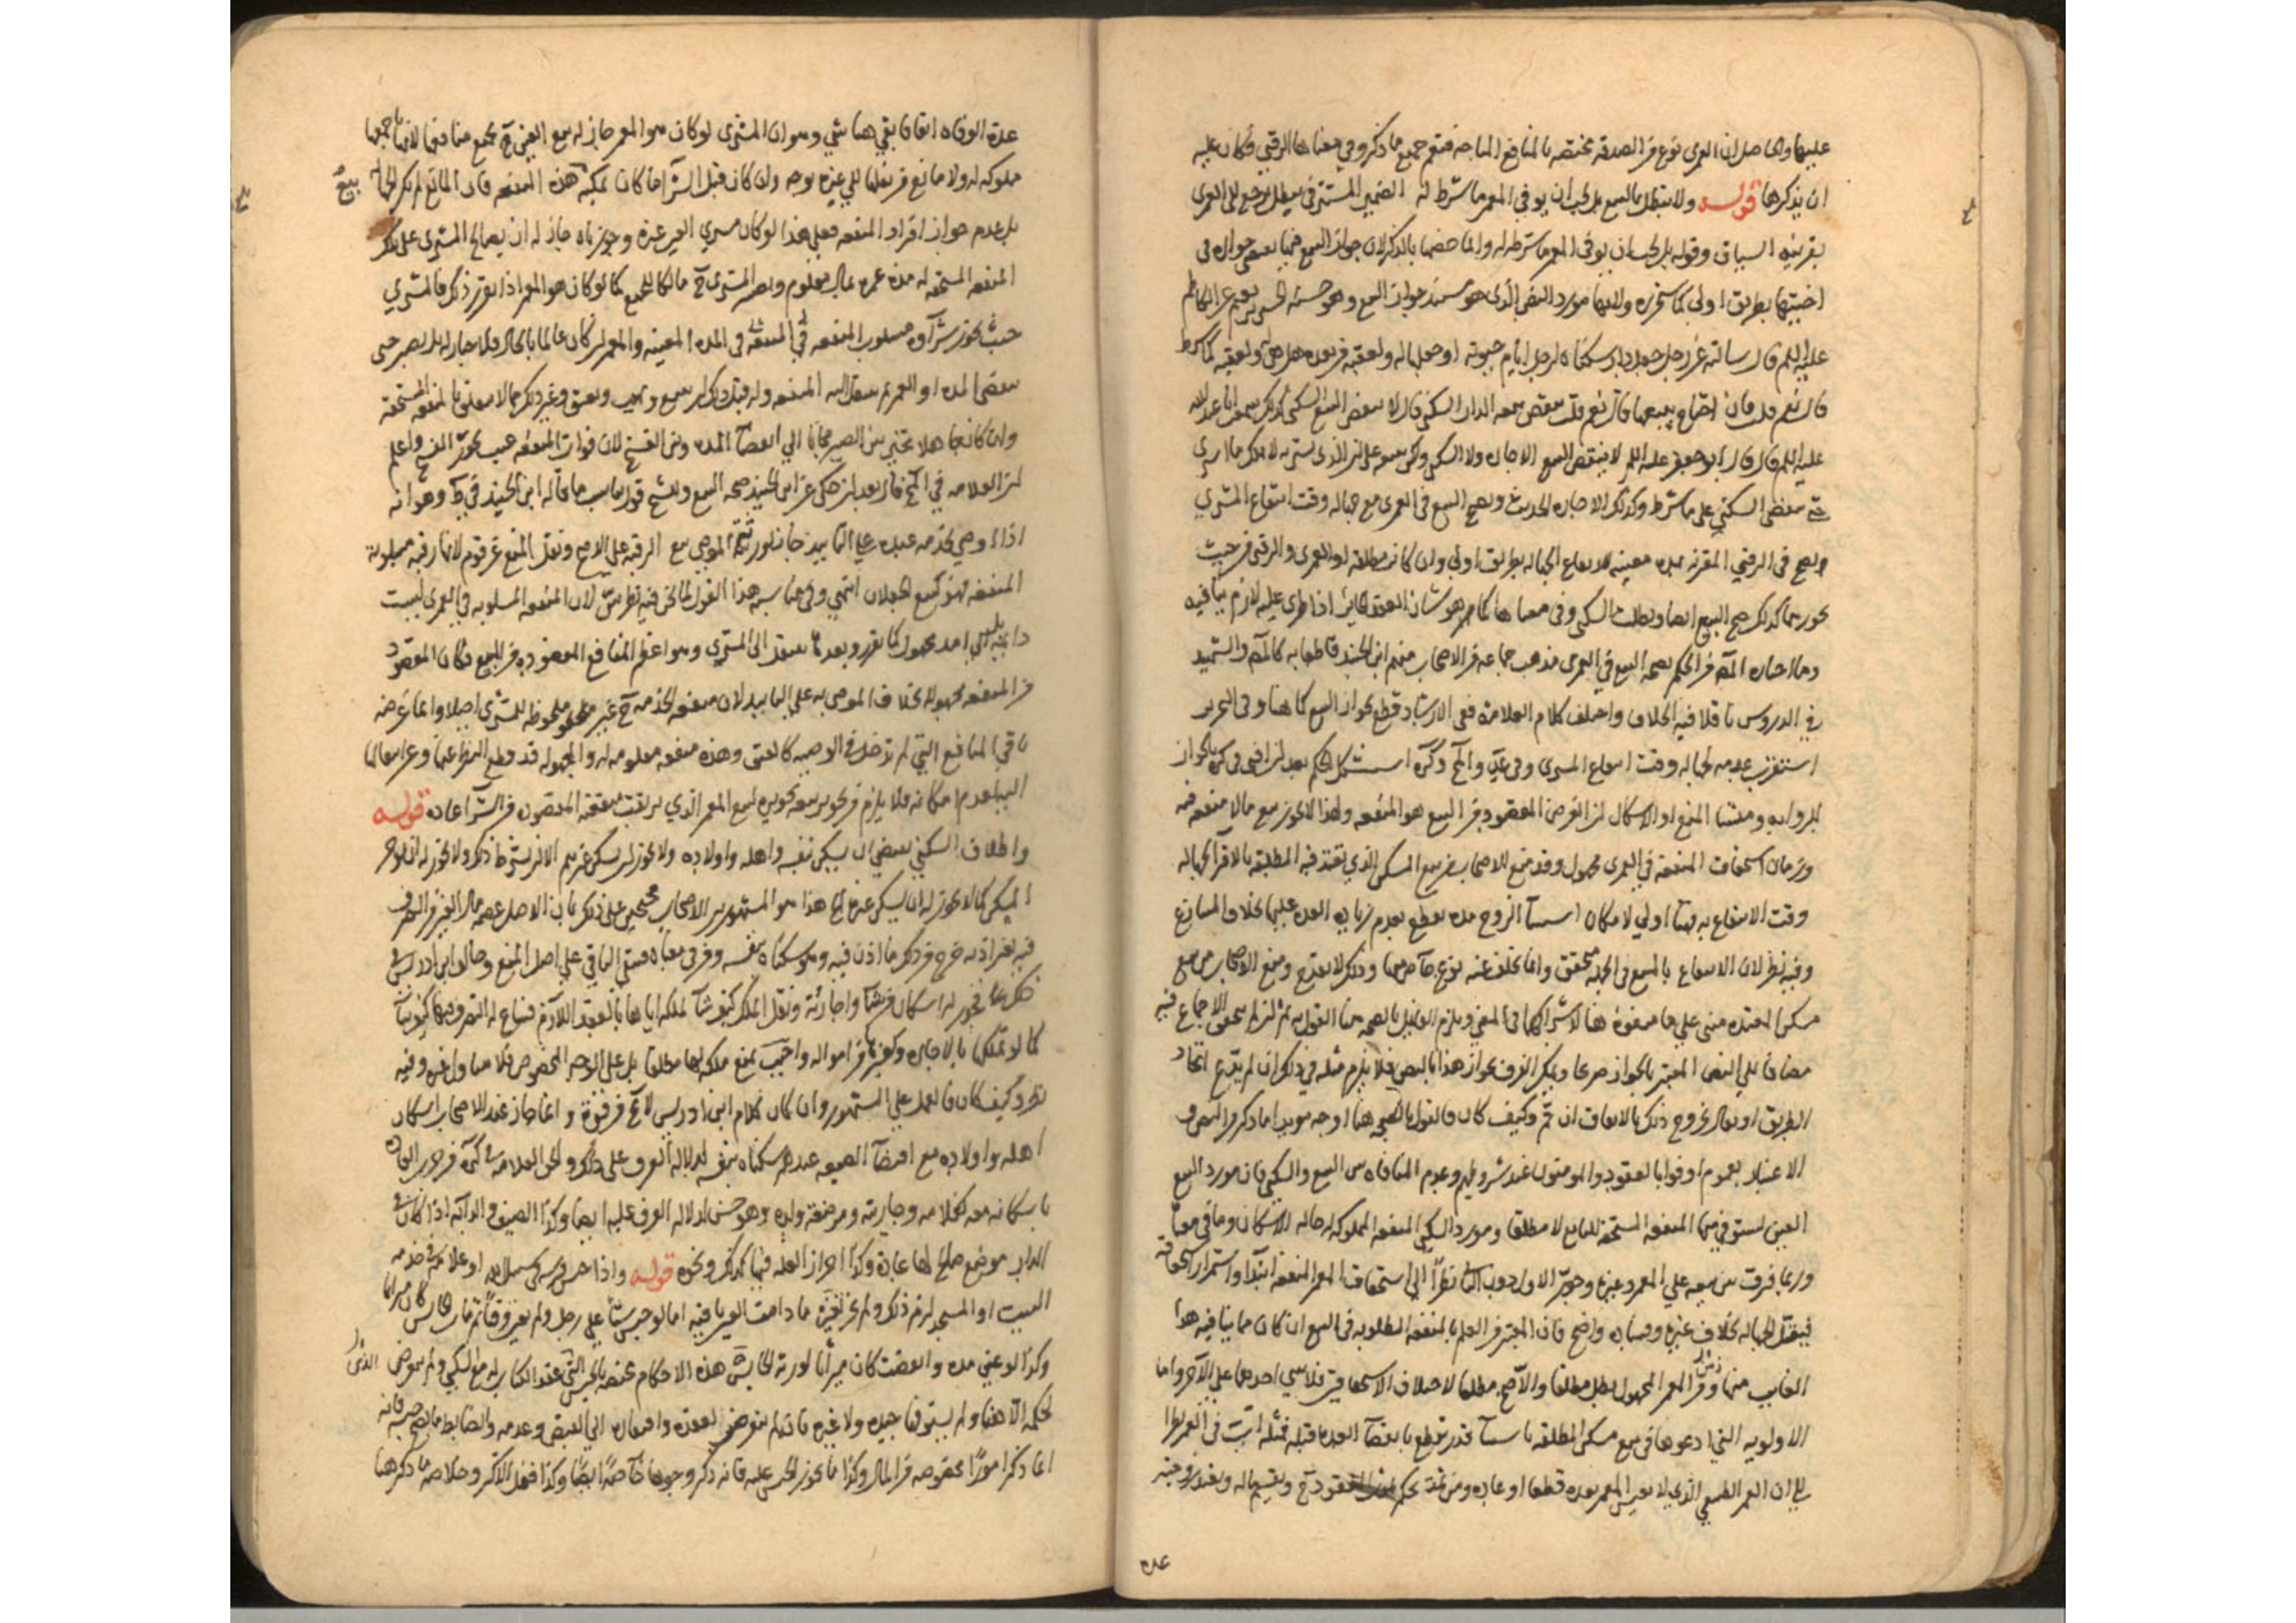 عليها والحاصل ان العمرى نوع من الصدقة مختصه بالمنافع المباحه فيقع جميع ما ذكر وفي معناها الرقبى وكان عليه
ان يذكرها قوله ولا تبطل بالبيع بل يجب ان يوفي المعمر ما شرط له الضمير المستتر في يبطل يرجع الى العمرى
بقرينه السياق وقوله بل يجب ان يوفى المعمر ما شرط له وانما خصها بالذكر لان جواز البيع فيها يقتضي جوازه في
اختيها بطريق اولى كما ستحرره ولانها مورد النص الذي هو مستند جواز البيع وهو حسنه الحسين بن نعيم عن الكاظم
عليه السلم قال سالته عن رجل جعل دار سكناه لرجل ايام حيوته او جعلها له ولعقبه من بعده هل هي له ولعقبه كما شرط
قال نعم قلت فان احتاج يبيعها قال نعم قلت ينقض بيعه الدار السكنى قال لا ينقض البيع السكنى كذلك سمعت ابي عبد الله
عليه السلم قال قال ابو جعفر عليه السلم لا ينقض البيع الاجاره ولا السكنى ولكن يبيعه على ان الذي يشتريه لا يملك ما اشترى
حتى ينقضي السكنى على ما شرط وكذلك الاجاره الحديث ويصح البيع في العمرى مع جهاله وقت انتفاع المشتري
ويصح في الرقبى المقترنه بمده معينه لارتفاع الجهاله بطريق اولى وان كانت مطلقه او العمرى والرقبى من حيث
يجوز بيعها كذلك صح البيع ايضا وبطلت السكنى وفي معناها كما هو شان العقد الجايز اذا طرى عليه لازم ينافيه
وما اختاره المص من الحكم بصحه البيع في العمرى مذهب جماعه من الاصحاب منهم ابن الجنيد قاطعا به كالمص والشهيد
في الدروس ناقلا فيه الخلاف واختلف كلام العلامة ففي الارشاد قطع بجواز البيع كما هنا وفي التحرير
استقرب عدمه لجهاله وقت انتفاع المشتري وفي عد والمخ وكره استشكل الحكم بعد ان افتى في كره بالجواز
للروايه ومنشا المنع او الاشكال ان الغرض المقصود من البيع هو المنفعه ولهذا لا يجوز بيع ما لا منفعه فيه
وزمان استحقاق المنفعه في العمرى مجهول وقد منع الاصحاب من بيع المسكن الذي تعتد فيه المطلقه بالاقراء لجهاله
وقت الانتفاع به فهنا اولى لامكان استثناء الزوج مده يقطع بعدم زياده العده عليها بخلاف المتنازع
وفيه نظر لان الانتفاع بالمبيع في الجمله متحقق وانما تخلف عنه نوع خاص منها وذلك لا يقدح ومنع الاصحاب من بيع
مسكن المعتده مبني على ما منعوه هنا لاشتراكهما في المعنى ويلزم القايل بالصحه هنا القول به ثم ان لم يتحقق الاجماع فيه
مضافا الى النص المعتبر بالجواز صريحا ويمكن الفرق بجواز هذا بالنص فلا يلزم مثله في ذلك ان لم يقع اتحاد
الطريق او يقال بخروج ذلك بالاتفاق ان تم وكيف كان فالقول بالصحه هنا اوجه مويدا بما ذكر من النص و
الاعتبار بعموم اوفوا بالعقود والمومنون عند شروطهم وعدم المنافاه بين البيع والسكنى فان مورد البيع
العين ليستوفي منها المنفعه المستحقه للبايع لا مطلقا ومورد السكنى المنفعه المملوكه له حاله الاسكان وما في معناه
وربما فرقت بين بيعه على المعمر وغيره وجوز الاول دون الثاني نظرا الى استحقاق المعمر المنفعه ابتداء واستمرار استحقاقه
فيقتل الجهاله بخلاف غيره وفساده واضح فان المعتبر من العلم بالمنفعه المطلوبه في البيع ان كان مما ينافيه هذا
الغايب منها زمن المعمر المجهول بطل مطلقا والا صح مطلقا لاختلاف الاستحقاقين فلا يبنى احدهما على الاخر واما
الاولويه التي ادعوها في بيع مسكن المطلقه باستثناء قدر يقطع بانقضاء العده قبله فمثله ات في العمر نظرا
الى ان العمر الطبيعي الذي لا يعيش المعمر بعده قطعا او عاده ومن ثمه يحكم بموت المفقود ح ويقسم ماله ويعتد زوجته
عده
عدة الوفاه اتفاقا بقي هنا شي وهو ان المشتري لو كان هو المعمر جاز له بيع العين ح بجميع منافعها لانها باجمعها
مملوكه له ولا مانع من نقلها الى غيره بوجه وان كان قبل الشراء ما كان يمكنه بيع هذه المنفعه فان المانع لم يكن الجهاله
بل عدم جواز افراد المنفعه فعلى هذا لو كان مشتري العين غيره وجوزناه جاز له ان يصالح المشتري على تلك
المنفعه المستحقه له مده عمره بمال معلوم ويصير المشتري ح مالكا للجميع كما لو كان هو المعمر اذا تقرر ذلك فالمشتري
حيث يجوز شراوه مسلوب المنفعه في المده المعينه والعمر ان كان عالما بالحال فلا خيار له بل يصبر حتى
ينقضي المده او العمر ثم ينتقل اليه المنفعه وله قبل ذلك ان يبيع ويهب ويعتق وغير ذلك مما لا يتعلق بالمنفعه المستحقه
وان كان جاهلا تخير بين الصبر مجانا الى انقضاء المده وبين الفسخ لان فوات المنفعه عيب يجوز الفسخ واعلم
ان العلامه في المخ قال بعد ان حكى عن ابن الجنيد صحه البيع وللشيخ قول يناسب ما قاله ابن الجنيد في ط وهو انه
اذا اوصى بخدمه عبده على التابيد جاز لورثه الموصي بيع الرقبه على الاصح ونقل المنع عن قوم لانها رقبه مسلوبة
المنفعه فهو كبيع الجعلان انتهى وفي مناسبه هذا القول لما نحن فيه نظر بين لان المنفعه المسلوبه في العمرى ليست
دايمه بل الى امد مجهول كما تقرر وبعدها ينتقل الى المشتري وهو اعظم المنافع المقصوده من المبيع فكان المقصود
من المنفعه مجهولا بخلاف الموصى به على التابيد لان منفعه الخدمه ح غير ملحوظه للمشتري اصلا وانما غرضه
باقي المنافع التي لم تدخل في الوصيه كالعتق وهذه منفعه معلومه له والمجهوله قد قطع النظر عنها وعن انتقالها
اليه لعدم امكانه فلا يلزم من تجويز بيعه تجويز بيع المعمر الذي يرتقب منفعته المقصوده من الشراء عاده قوله
واطلاق السكنى يقتضي ان يسكن نفسه واهله واولاده ولا يجوز ان يسكن غيرهم الا ان يشترط ذلك ولا يجوز له ان يوجر
المسكن كما لا يجوز له ان يسكن غيره الخ هذا هو المشهور بين الاصحاب محتجين على ذلك بان الاصل عصمه مال الغير من التصرف
فيه بغير اذنه خرج من ذلك ما اذن فيه وهو سكناه بنفسه ومن في معناه فيبقى الباقي على اصل المنع وخالف ابن ادريس في
ذلك كله فجوز له اسكان من شاء واجارته ونقل الملك كيف شاء لملكه اياها بالعقد اللازم فساغ له التصرف فيها كيف شاء
كما لو تملكها بالاجاره وكغيرها من امواله واجيب بمنع ملكه لها مطلقا بل على الوجه المخصوص فلا يتناول غيره وفيه
نظر وكيف كان فالعمل على المشهور وان كان كلام ابن ادريس لا يخ من قوة وانما جاز عند الاصحاب اسكان
اهله واولاده مع اقتضاء الصيغه عندهم سكناه بنفسه لدلاله العرف على ذلك والحق العلامه في كره من جرت العاده
باسكانه معه كغلامه وجاريته ومرضعة ولده وهو حسن لدلاله العرف عليه ايضا وكذا الضيف والدابه اذا كان في
الدار موضع صالح لها عادة وكذا احراز الغله فيها كذلك ونحوه قوله واذا حبس فرسه في سبيل الله او غلامه في خدمه
البيت او المسجد لزم ذلك ولم يجز تغييره ما دامت العين باقيه اما لو حبس شيئا على رجل ولم يعين وقتا ثم مات الحابس كان ميراثا
وكذا لو عين مده وانقضت كان ميراثا لورثة الحابس هذه الاحكام مختصه بالحبس الذي عقد الكتاب له مع السكنى ولم يتعرض
لحكمه الا هنا ولم يستوفها جيدا ولا غيره فانه لم يتعرض لعقده وافتقاره الى القبض وعدمه والضابط ما يصح حبسه فانه
انما ذكر امورا مخصوصه من المال وكذا ما يجوز الحبس عليه فانه ذكر وجوها خاصة ايضا وكذا فعل الاكثر وخلاصه ما ذكر هنا